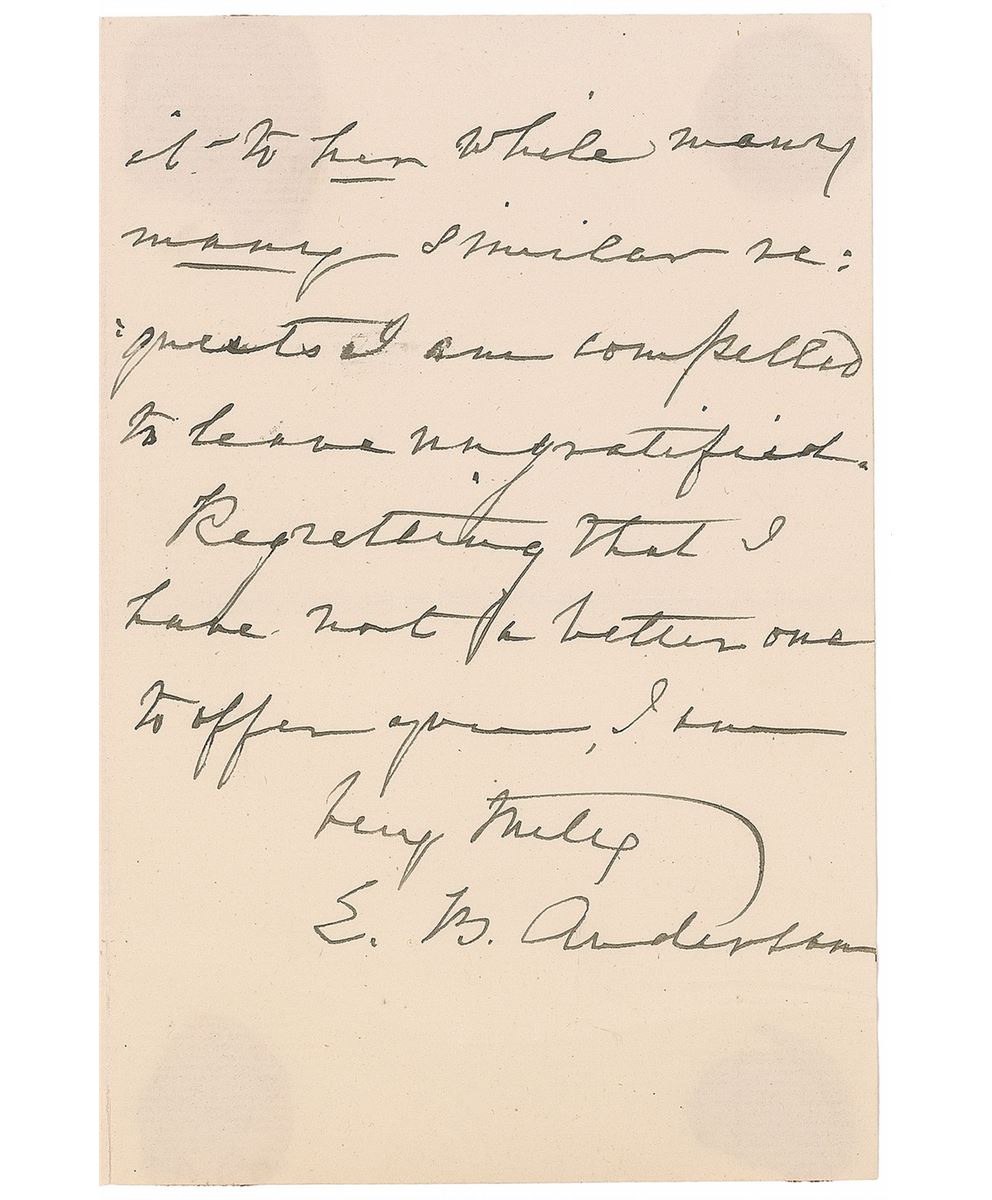 it to her while many
many similar re:
:quests I am compelled
to leave ungratified.
Regretting that I
have not a better one
to offer you, I am
very truly
E. B. Anderson